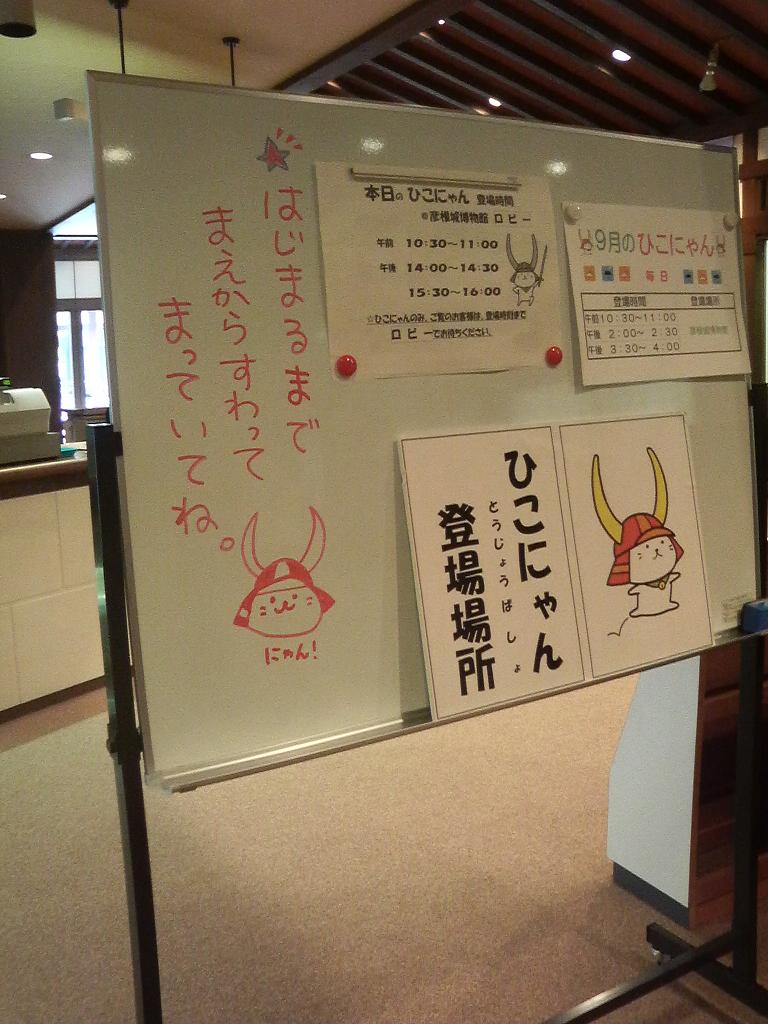 はじまるまで
まえからすわって
まっていてね。
にゃん!
本日の ひこにゃん 登場時間
@彦根城博物館 ロビー
午前 10:30～11:00
午後 14:00～14:30
15:30～16:00
☆ひこにゃんのみ、ご覧のお客様は、登場時間まで
ロビーでお待ちください。
9月のひこにゃん
毎日
登場時間 登場場所
午前10:30～11:00
午後 2:00～2:30 彦根城博物館
午後 3:30～4:00
ひこにゃん
とうじょうばしょ
登場場所